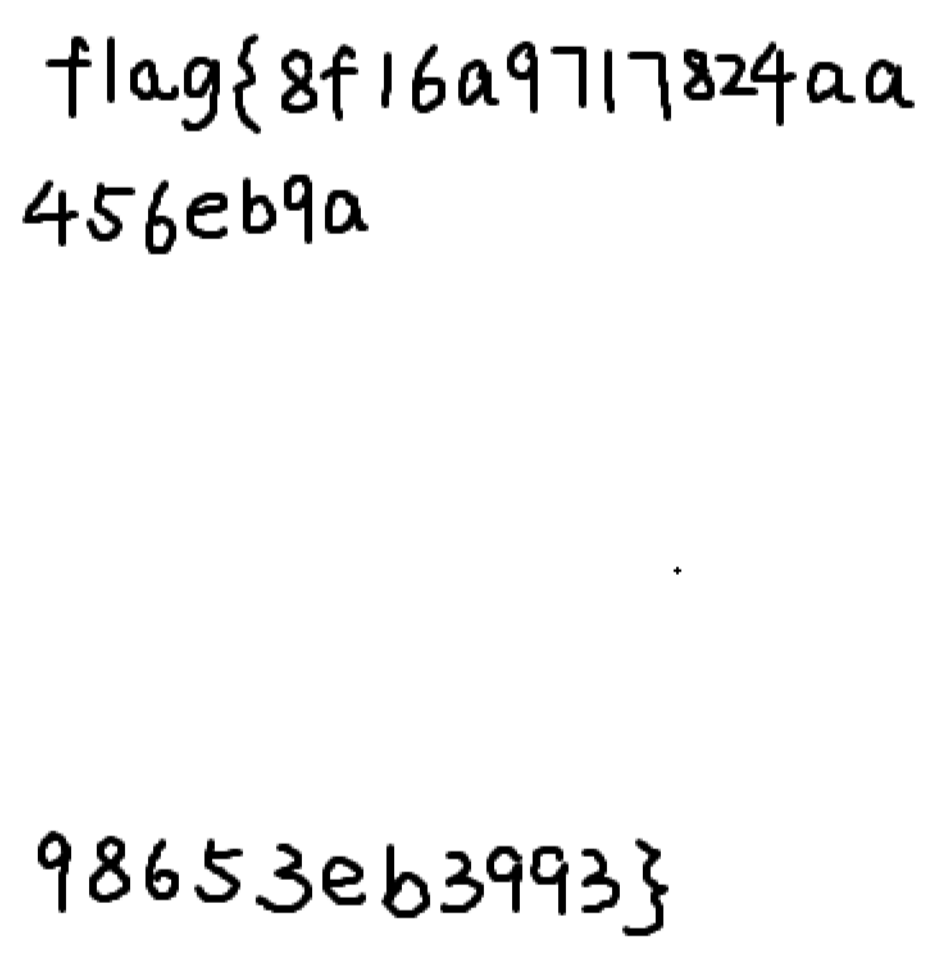 flag{8f16a9717824aa
456eb9a
98653eb3993}